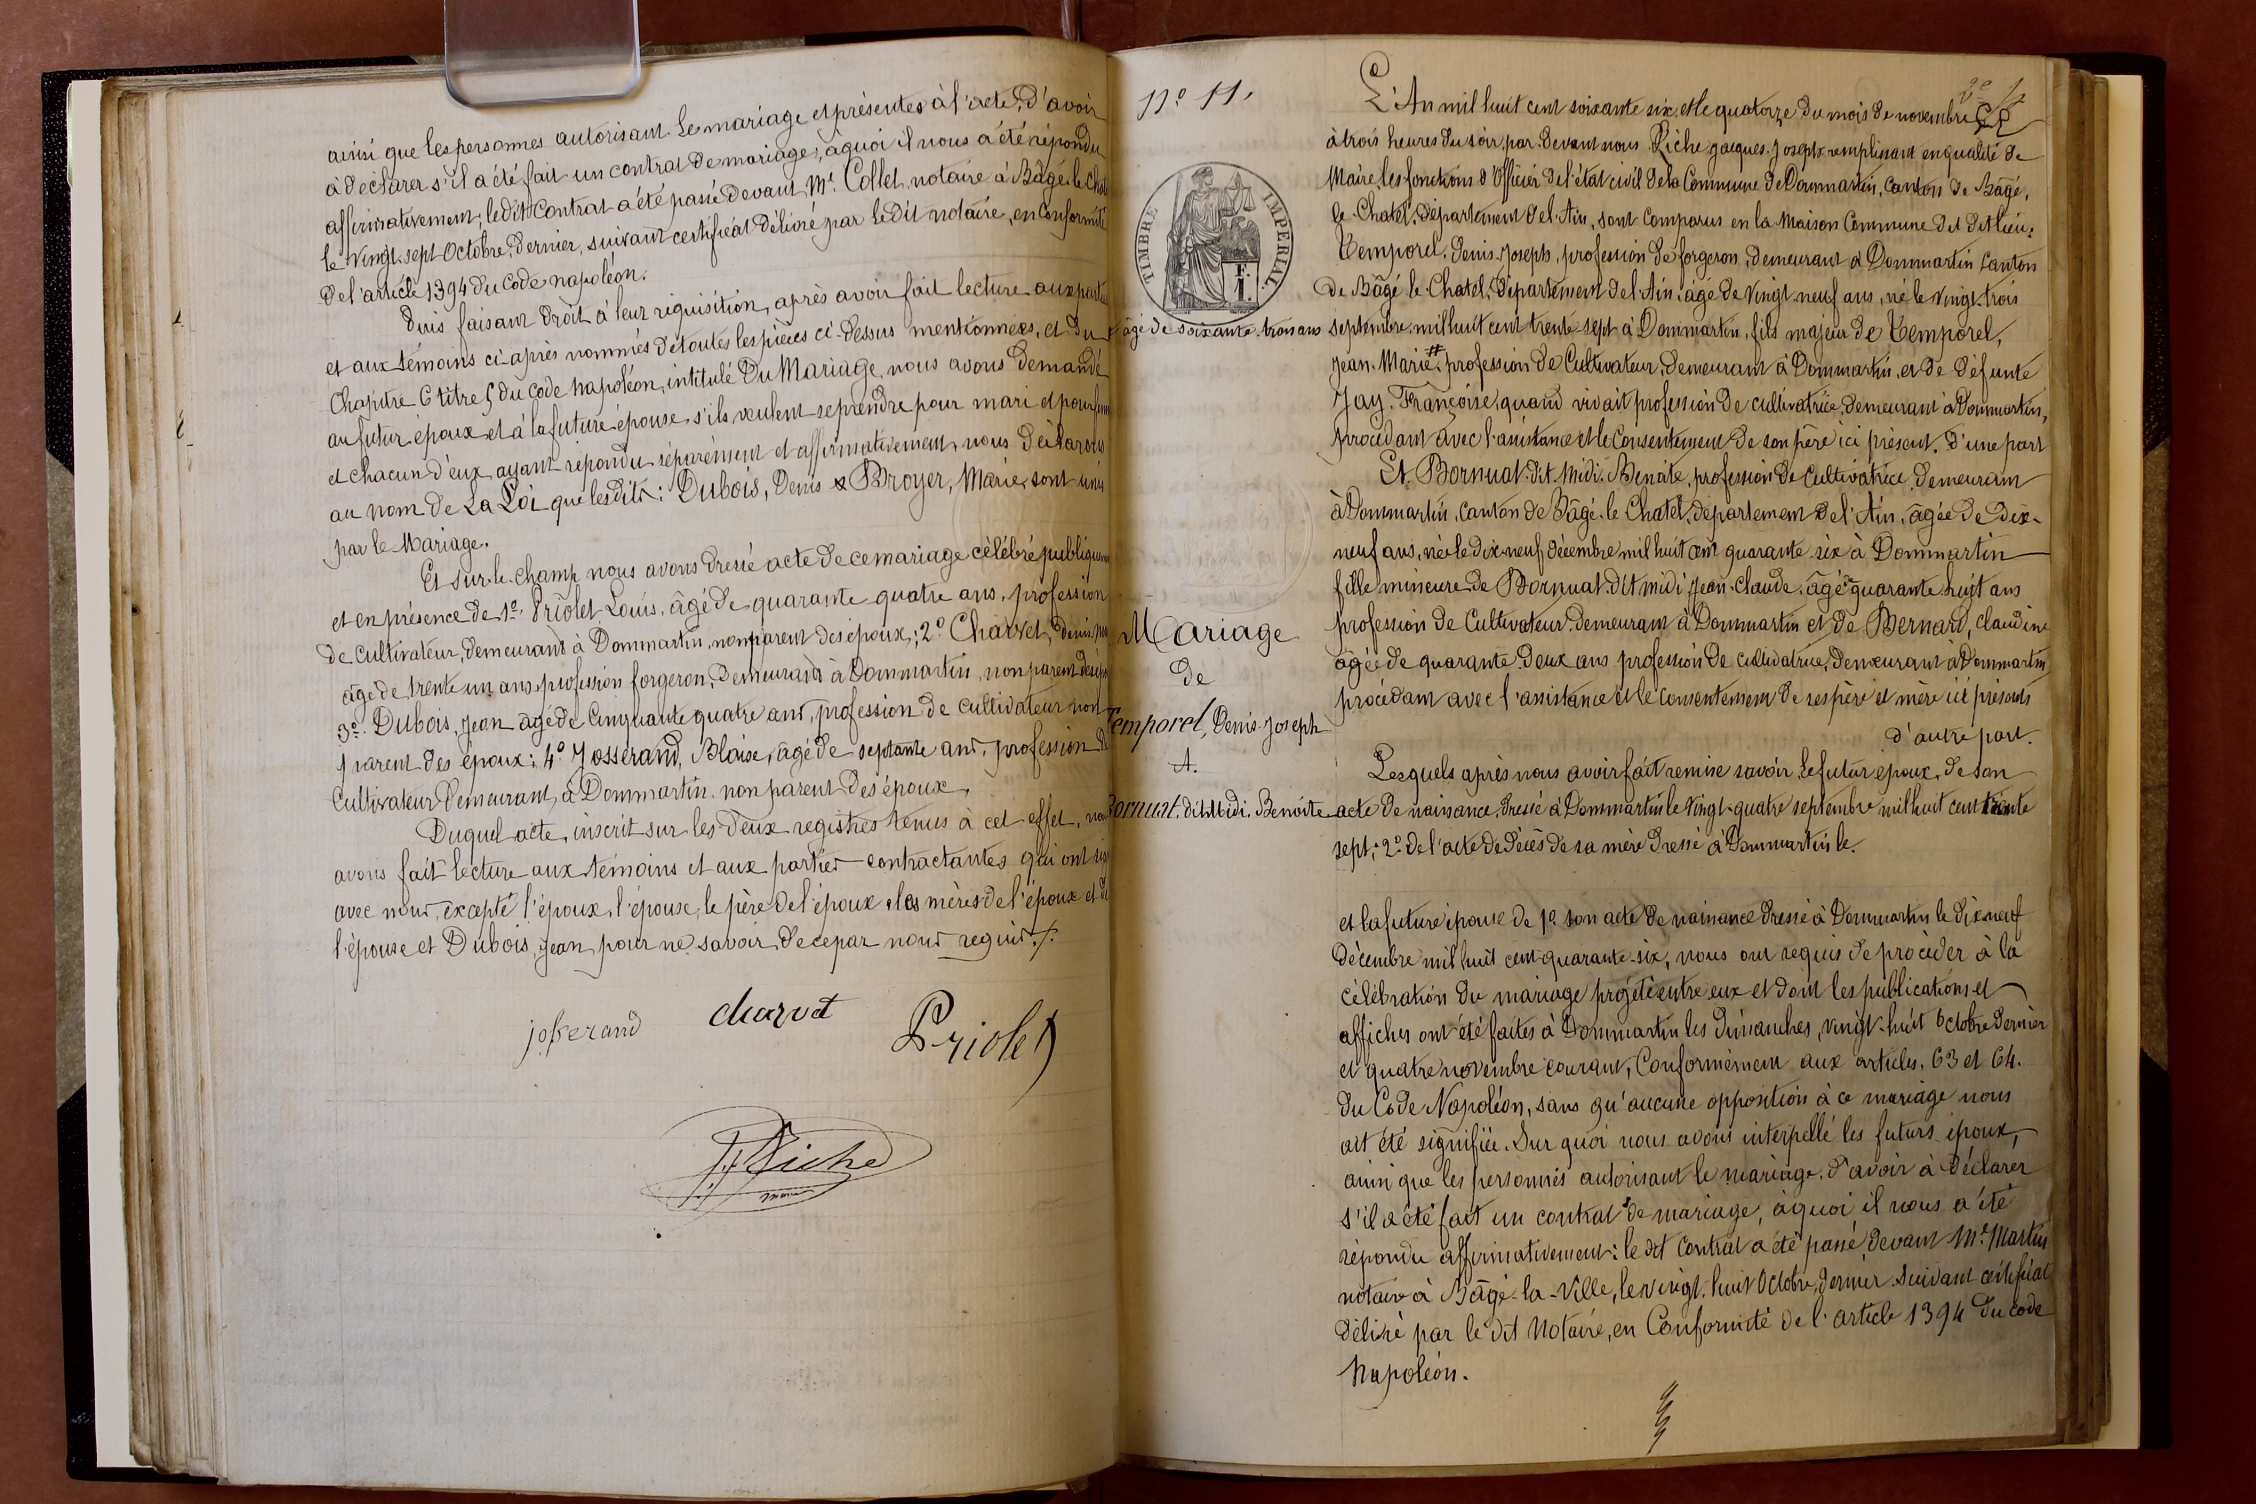 ainsi que les personnes autorisant le mariage et présentes à l'acte, d'avoir
à déclarer s'il a été fait un contrat de mariage, à quoi il nous a été répondu
affirmativement; ledit contrat a été passé devant Me. Collet, notaire à Bâgé-le-Chatel
le vingt-sept Octobre, dernier, suivant certificat délivré par le dit notaire, en conformité
de l'article 1394 du Code napoléon.
Puis faisant droit à leur réquisition, après avoir fait lecture aux parties
et aux témoins ci-après nommés de toutes les pièces ci-dessus mentionnées, et du
Chapitre 6 titre 5 du Code napoléon, intitulé Du Mariage, nous avons demandé
au futur époux et à la future épouse s'ils veulent se prendre pour mari et pour femme
et chacun d'eux ayant répondu séparément et affirmativement, nous déclarons
au nom de La Loi que lesdits: Dubois, Denis & Broyer, Marie, sont unis
par le Mariage.
Et sur-le-champ nous avons dressé acte de ce mariage célébré publiquement
et en présence de 1o. Priolet Louis, âgé de quarante quatre ans, profession
de cultivateur, demeurant à Dommartin, non parent des époux; 2o Charvet, Denis
âgé de trente un ans profession forgeron, demeurant à Dommartin, non parent des époux
3o. Dubois, Jean âgé de Cinquante quatre ans, profession de cultivateur non
parent des époux; 4o Josserand, Blaise, âgé de septante ans, profession de
Cultivateur demeurant, à Dommartin non parent des époux.
Duquel acte, inscrit sur les deux registres tenus à cet effet, nous
avons fait lecture aux témoins et aux parties contractantes qui ont signé
avec nous, excepté l'époux, l'épouse, le père de l'époux & les mères de l'époux et de
l'épouse et Dubois, Jean, pour ne savoir, de ce par nous requis./.
josserand
charvet
Priolet
J. J. Riche
maire
No 11.
TIMBRE IMPERIAL
F.
1.
L'An mil huit cent soixante six et le quatorze du mois de novembre
à trois heures du soir, par-devant nous Riche Jacques-Joseph remplissant en qualité de
Maire, les fonctions d'Officier de l'état civil de la Commune de Dommartin, canton de Bâgé,
le Chatel, département de l'Ain, sont comparus en la Maison Commune du dit lieu:
Temporel, Denis-Joseph, profession de forgeron, demeurant à Dommartin canton
de Bâgé-le-Chatel, département de l'Ain, âgé de vingt-neuf ans, né le vingt-trois
septembre mil huit cent trente-sept à Dommartin, fils majeur de Temporel,
âgé de soixante-trois ans
Jean-Marie #. profession de Cultivateur, demeurant à Dommartin, et de défunte
Jay, Françoise, quand vivait profession de cultivatrice, demeurant à Dommartin,
procédant avec l'assistance et le consentement de son père ici présent. d'une part
Et Bornuat dit Midi, Benoite, profession de Cultivatrice, demeurant
à Dommartin, canton de Bâgé-le-Chatel, département de l'Ain, âgée de dix-
neuf ans, née le dix-neuf décembre mil huit cent quarante six à Dommartin
fille mineure de Bornuat dit midi Jean-Claude, âgé de quarante huit ans
profession de Cultivateur, demeurant à Dommartin et de Bernard, Claudine
âgée de quarante-deux ans profession de cultivatrice, demeurant à Dommartin
procédant avec l'assistance et le consentement de ses père et mère ici présents
d'autre part.
Mariage
de
Temporel, Denis-Joseph
A.
Bornuat, dit Midi, Benoite
Lesquels après nous avoir fait remise savoir, le futur époux, de son
acte de naissance, dressé à Dommartin le vingt-quatre septembre mil huit cent trente
sept; 2o de l'acte de décès de sa mère dressé à Dommartin le.
et la future épouse de 1o son acte de naissance dressé à Dommartin le dix neuf
décembre mil huit cent quarante-six, nous ont requis de procéder à la
célébration du mariage projeté entre eux et dont les publications et
affiches ont été faites à Dommartin les dimanches, vingt-huit octobre dernier
et quatre novembre courant, Conformément aux articles, 63 et 64.
du Code Napoléon, sans qu'aucune opposition à ce mariage nous
ait été signifiée. Sur quoi nous avons interpellé les futurs époux,
ainsi que les personnes autorisant le mariage, d'avoir à déclarer
s'il a été fait un contrat de mariage, à quoi il nous a été
répondu affirmativement: le dit contrat a été passé devant Me. Martin
notaire à Bâgé-la-Ville, le vingt-huit Octobre, dernier suivant certificat
délivré par le dit Notaire, en Conformité de l'article 1394 du Code
Napoléon.